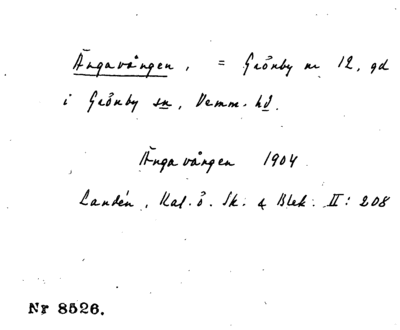 Ängavången, = Grönby nr 12, gd
i Grönby sn, Vemm. hd.
Änga vången 1904
Landén, Kal. ö. Sk. & Blek. II: 208
Nr 8526.